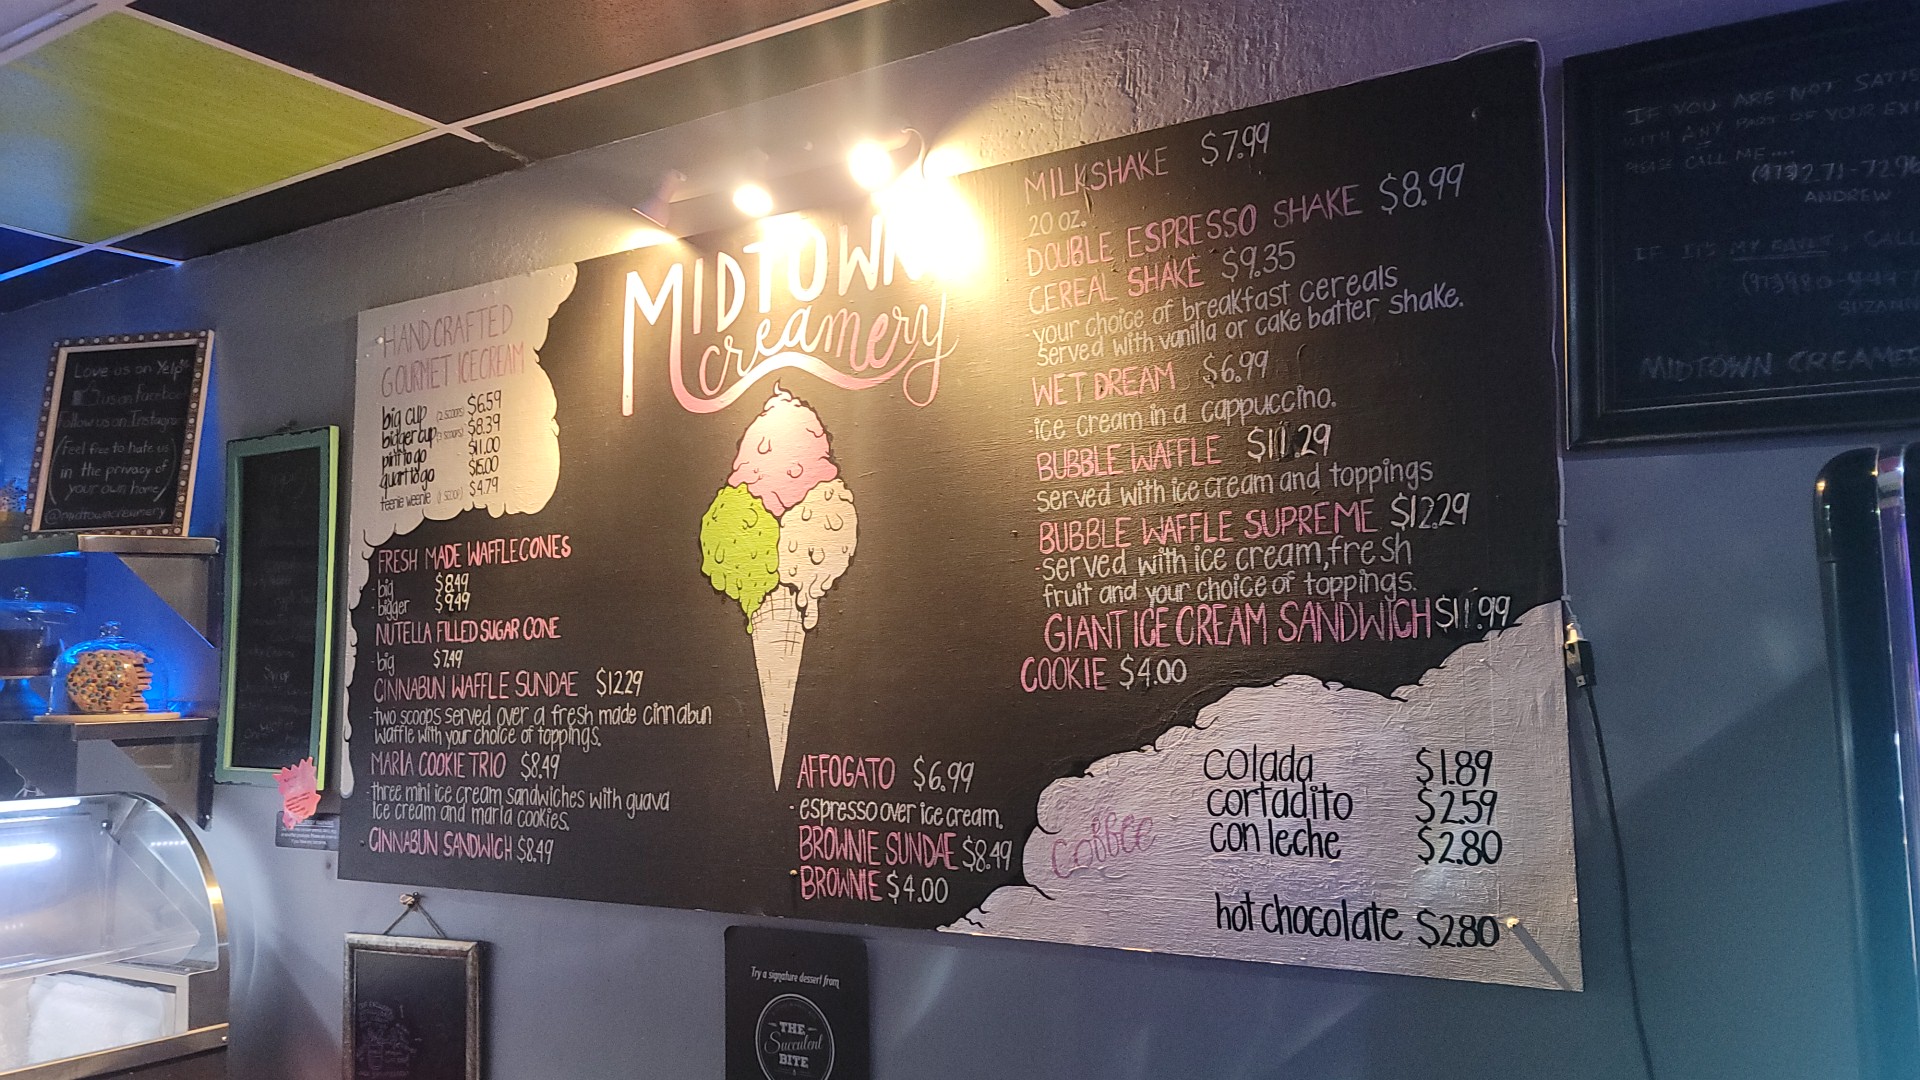 Love us on Yelp
us on Facebook
Follow us on Instagram
(Feel free to hate us
in the privacy of
your own home)
@midtowncreamery
MIDTOWN
creamery
HANDCRAFTED
GOURMET ICECREAM
big cup (2 SCOOPS) $6.59
bigger cup (3 SCOOPS) $8.39
pint to go $11.00
quart to go $15.00
teenie weenie (1 SCOOP) $4.79
FRESH MADE WAFFLE CONES
- big $8.49
- bigger $9.49
NUTELLA FILLED SUGAR CONE
- big $7.49
CINNABUN WAFFLE SUNDAE $12.29
- two scoops served over a fresh made cinnabun
waffle with your choice of toppings.
MARIA COOKIE TRIO $8.49
- three mini ice cream sandwiches with guava
ice cream and maria cookies.
CINNABUN SANDWICH $8.49
AFFOGATO $6.99
- espresso over ice cream.
BROWNIE SUNDAE $8.49
BROWNIE $4.00
MILKSHAKE $7.99
20 oz.
DOUBLE ESPRESSO SHAKE $8.99
CEREAL SHAKE $9.35
- your choice of breakfast cereals
served with vanilla or cake batter shake.
WET DREAM $6.99
- ice cream in a cappuccino.
BUBBLE WAFFLE $11.29
- served with ice cream and toppings
BUBBLE WAFFLE SUPREME $12.29
- served with ice cream, fresh
fruit and your choice of toppings.
GIANT ICE CREAM SANDWICH $11.99
COOKIE $4.00
coffee
colada $1.89
cortadito $2.59
con leche $2.80
hot chocolate $2.80
IF YOU ARE NOT SATIS
WITH ANY PART OF YOUR EX
PLEASE CALL ME....
ANDREW
IF IT'S MY FAULT, CALL
MIDTOWN CREAMER
Try a signature dessert from
THE
Succulent
BITE